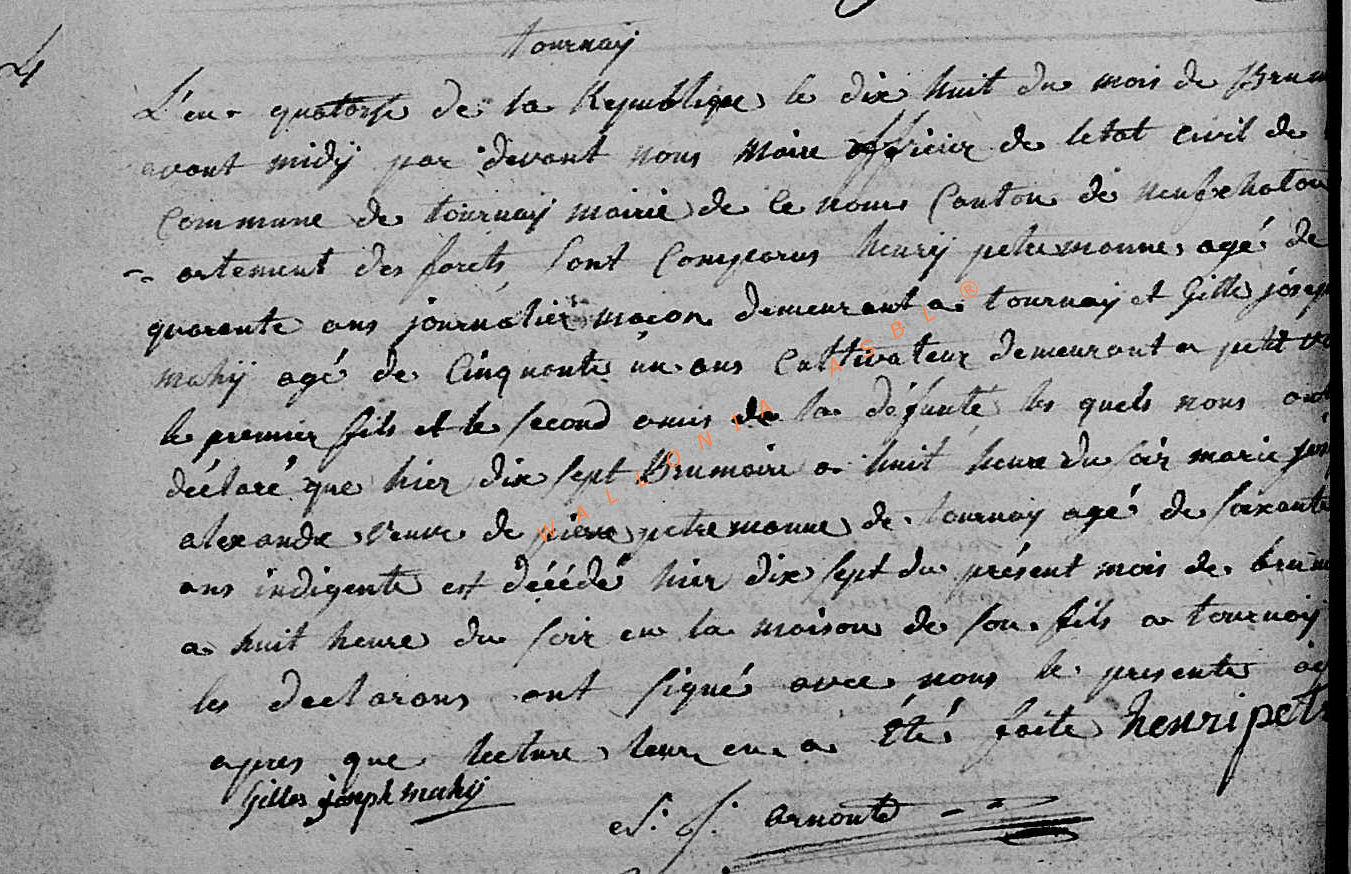 4
tournaÿ
L'en quatorse de la Republique le dix huit du mois de Brum
avant midÿ par devant nous maire officier de letat civil de
Commune de tournaÿ mairie de ce nom Canton de neufchatau
artement des forets, sont Comparus henrÿ petremanne agé de
quarante ans journalier maçon demeurant a tournaÿ et Gille josep
mahÿ agé de Cinquante un ans Cultivateur demeurant a petit
le premier fils et le second amis de la defunte les quels nous
déclaré que hier dix sept Brumaire a huit heure du soir marie
alexandre veuve de pierre petremanne de tournaÿ agé de soixante
ans indigente est décédé hier dix sept du présent mois de brum
a huit heure du soir en la maison de son fils a tournaÿ
les declarans ont signé avec nous le presente
apres que lecture leur en a Été faite henri pet
Gilles joseph mahÿ
arnould
WALLONIA ASBL ®